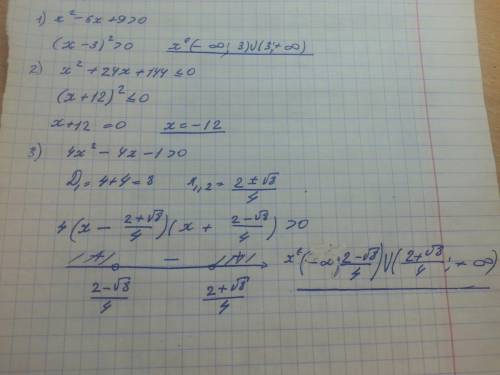 1) x² - 6x + 9 > 0
(x - 3)² > 0 x ∈ (-∞; 3)∪(3; +∞)
2) x² + 24x + 144 ≤ 0
(x + 12)² ≤ 0
x + 12 = 0 x = -12
3) 4x² - 4x - 1 > 0
D₁ = 4 + 4 = 8 x₁,₂ = (2 ± √8)/4
4(x - (2+√8)/4)(x + (2-√8)/4) > 0
+ - +
(2-√8)/4 (2+√8)/4 x ∈ (-∞; (2-√8)/4)∪((2+√8)/4; +∞)